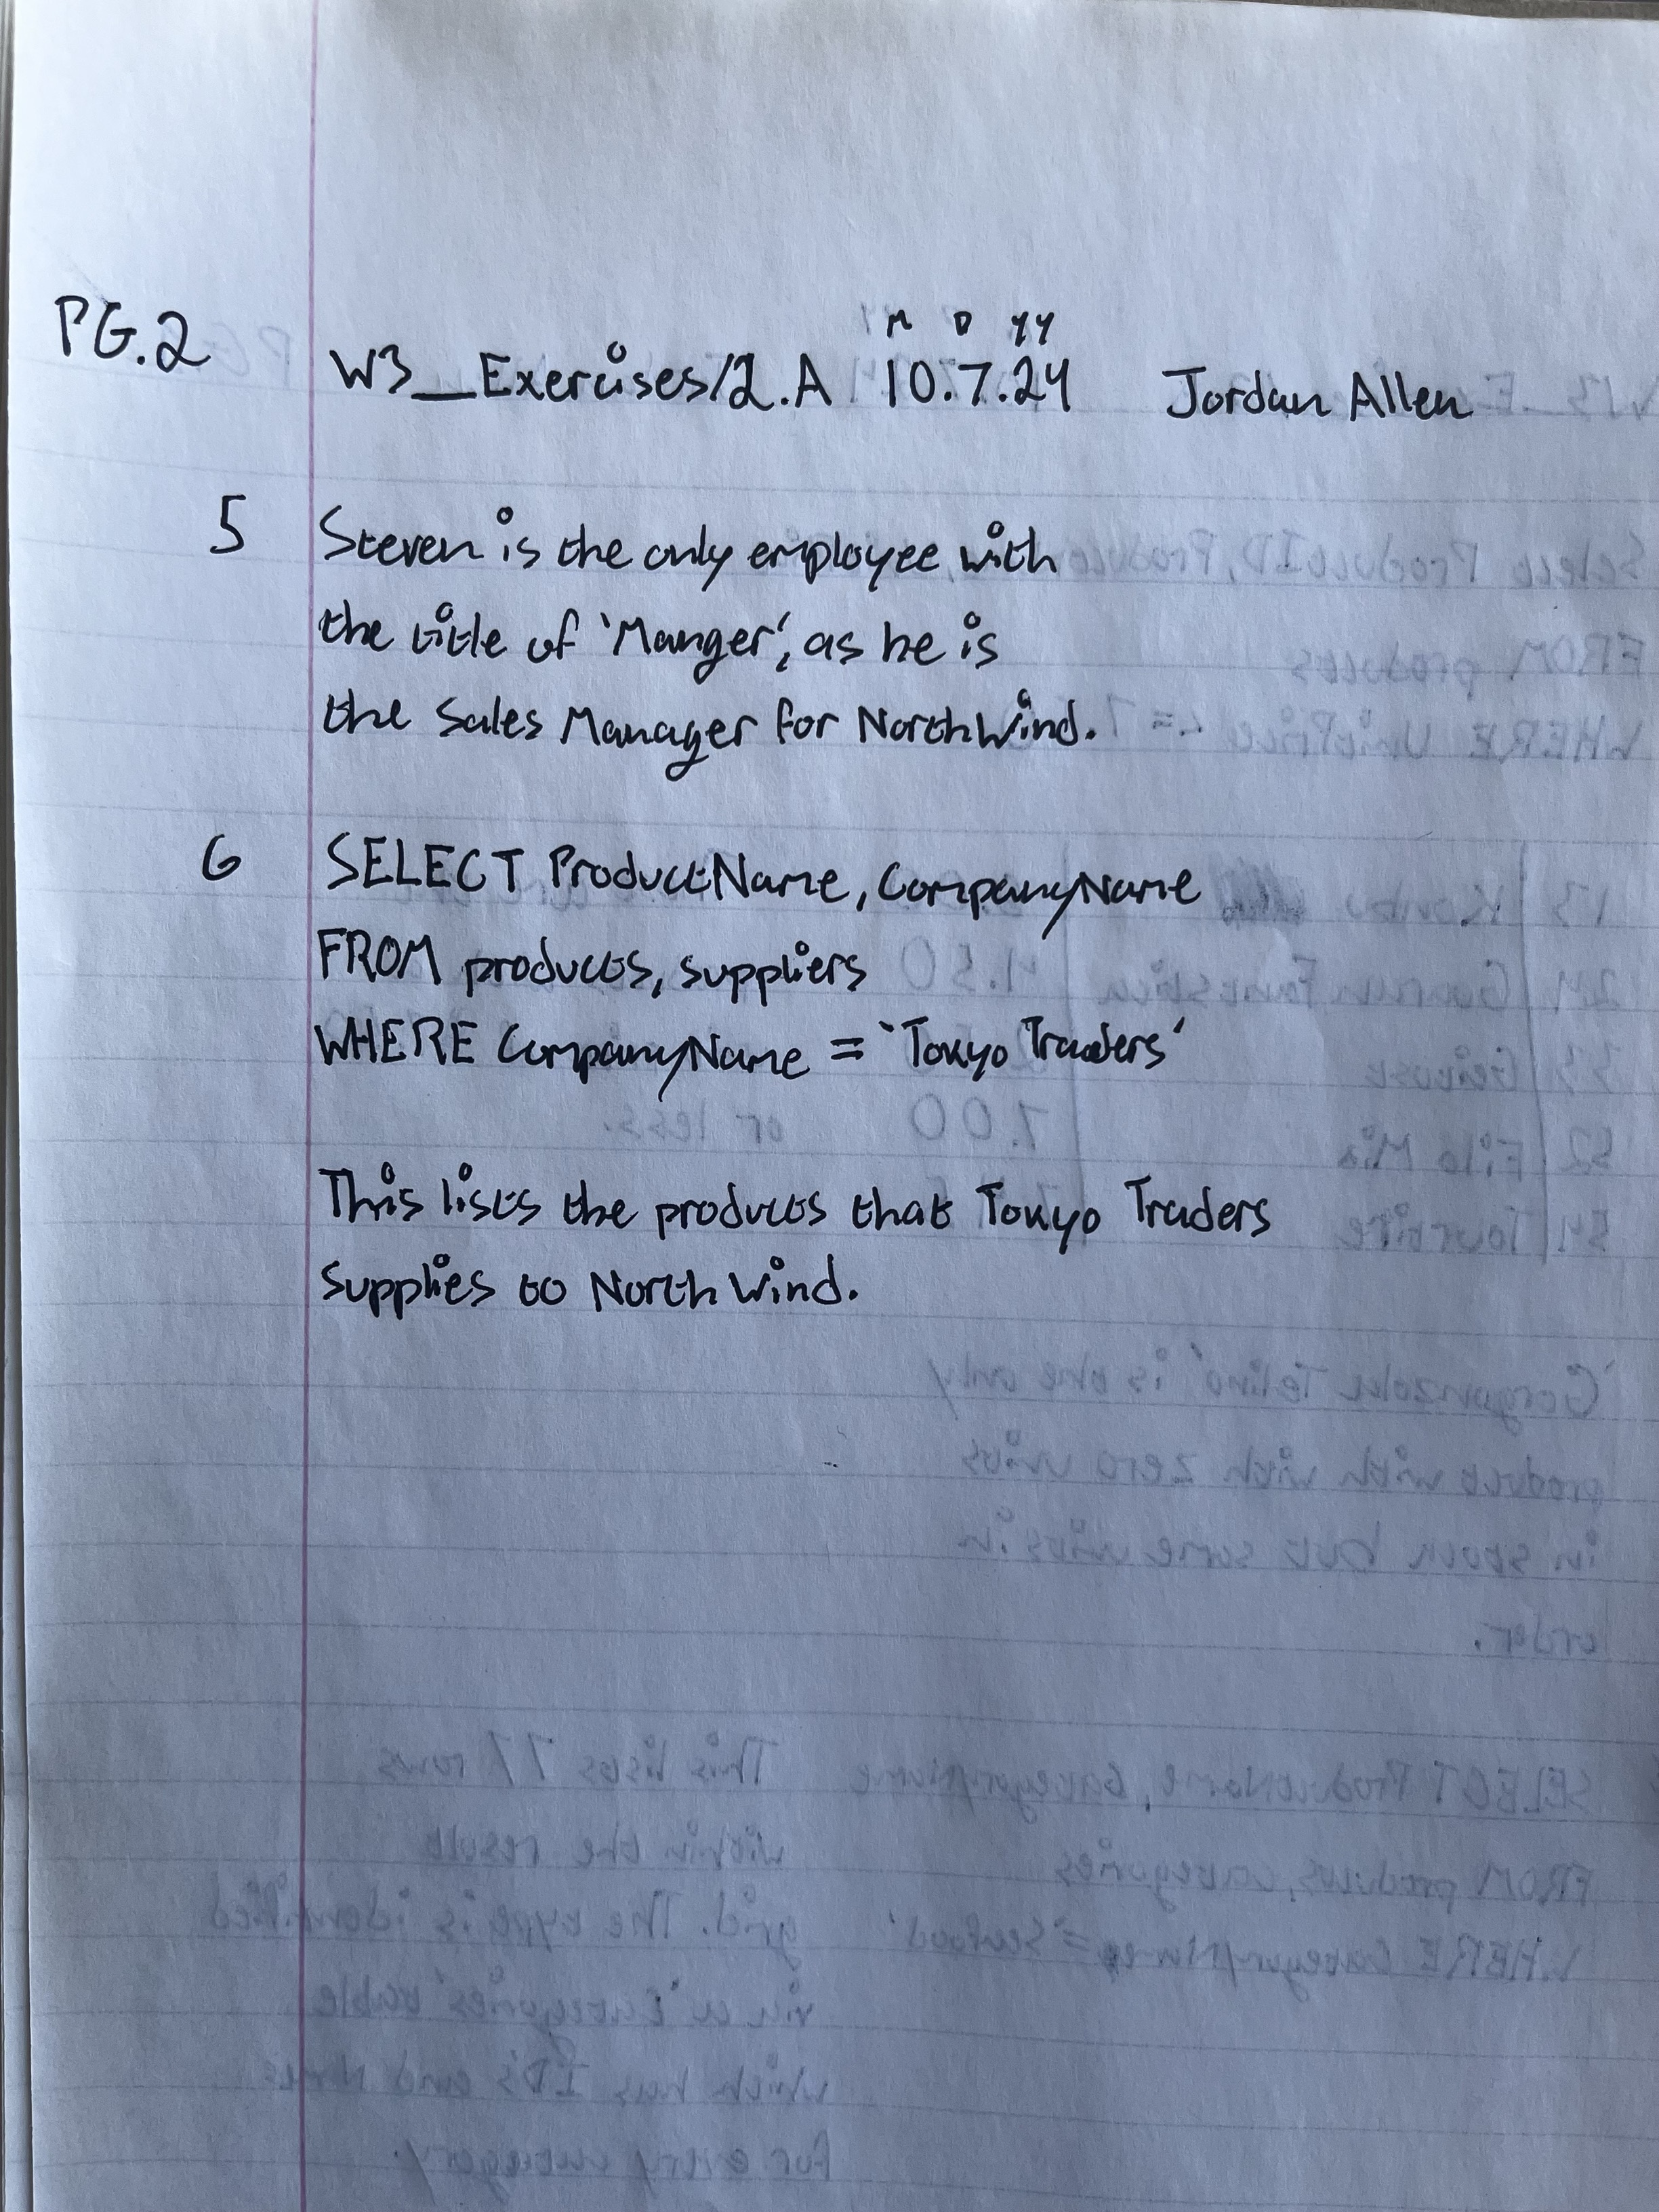 PG.2
M D YY
W3_Exercises/2.A 10.7.24 Jordan Allen
5 Steven is the only employee with
the title of 'Manger', as he is
the Sales Manager for NorthWind.
6 SELECT ProductName, CompanyName
FROM products, suppliers
WHERE CompanyName = 'Tokyo Traders'
This lists the products that Tokyo Traders
Supplies to NorthWind.